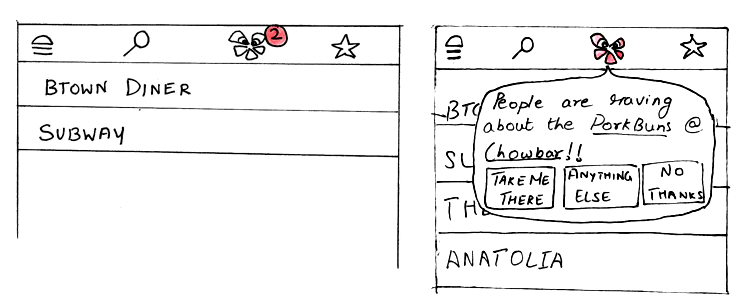 2
BTOWN DINER
SUBWAY
BTO
People are raving
about the PorkBuns @
Chowbar!!
SU
TAKE ME
THERE
ANYTHING
ELSE
NO
THANKS
THE
ANATOLIA